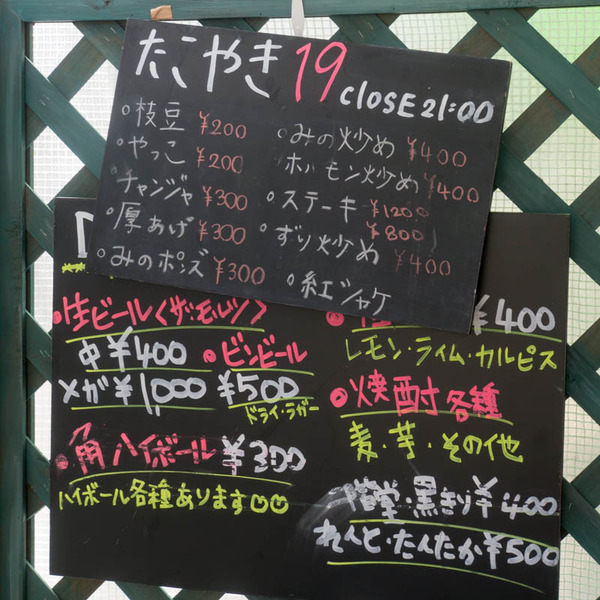 たこやき 19 CLOSE 21:00
○枝豆 ¥200
○やっこ ¥200
○チャンジャ ¥300
○厚あげ ¥300
○みのポンズ ¥300
○みの炒め ¥400
ホルモン炒め ¥400
○ステーキ ¥1200
¥800
○ずり炒め ¥400
○紅シャケ
○生ビール〈ザ・モルツ〉
中 ¥400
メガ ¥1,000
○ビンビール
¥500
ドライ・ラガー
○角ハイボール ¥300
ハイボール各種あります
¥400
レモン・ライム・カルピス
○焼酎各種
麦・芋・その他
堂・黒きり ¥400
れんと・たんたか ¥500